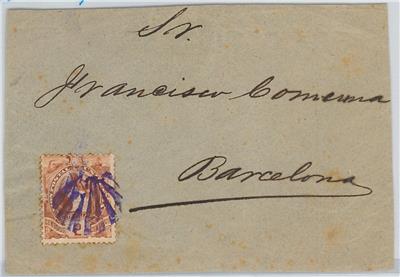 Sr.
Francisco Comerma
Barcelona